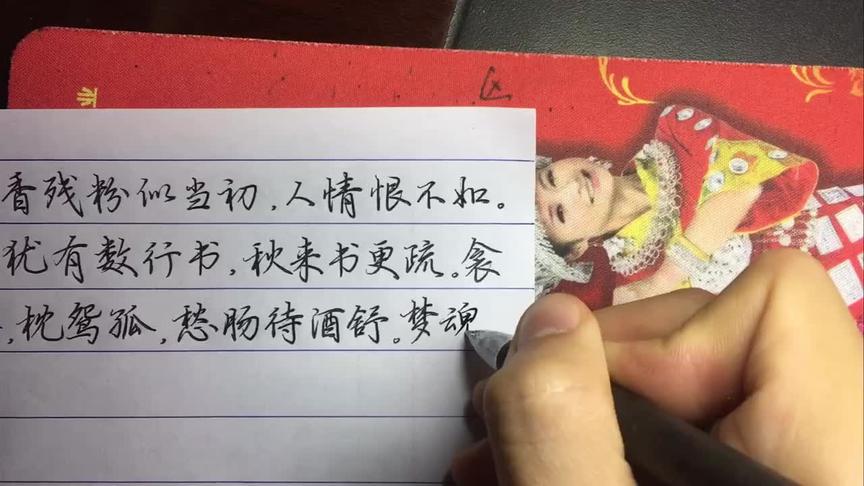 香残粉似当初,人情恨不如。
犹有数行书,秋来书更疏。衾
,枕鸳孤,愁肠待酒舒。梦魂
业